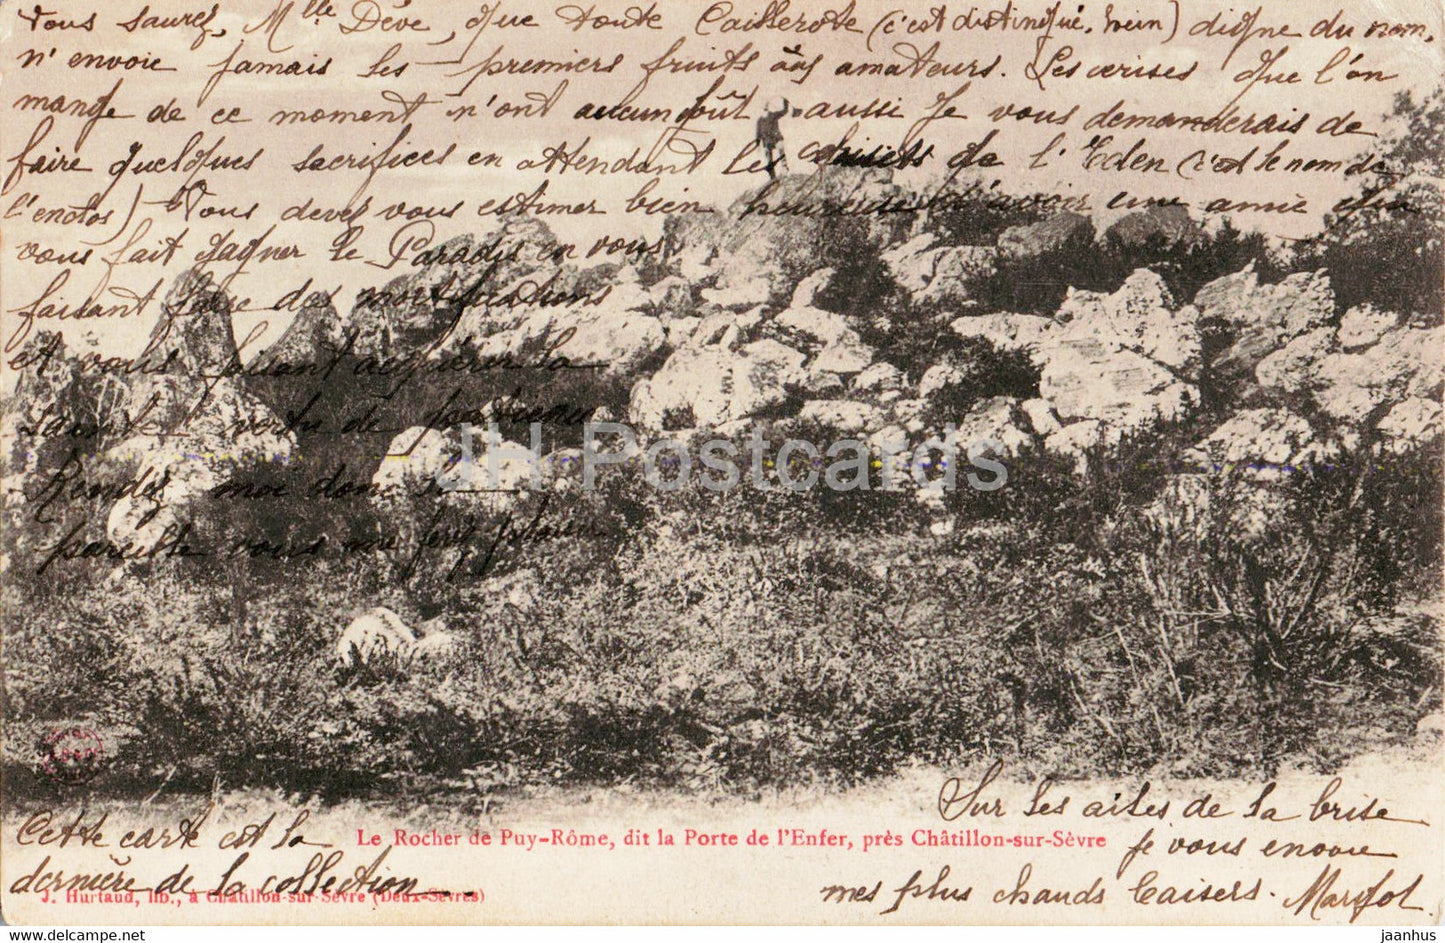 Vous saurez, Mlle Dève, que toute Caillerote (c'est distingué, hein) digne du nom,
n'envoie jamais les premiers fruits aux amateurs. Les cerises que l'on
mange de ce moment n'ont aucun goût aussi je vous demanderais de
faire quelques sacrifices en attendant les de l'Eden (c'est le nom de
l'enclos) Vous devez vous estimer bien heureuse d'avoir une amie qui
vous fait gagner le Paradis en vous
faisant faire des mortifications
et vous faisant acquérir la
sainte vertu de patience
Rendez moi donc la
pareille vous me ferez plaisir
Sur les ailes de la brise
Cette carte est la
Le Rocher de Puy-Rôme, dit la Porte de l'Enfer, près Châtillon-sur-Sèvre
je vous envoie
dernière de la collection
mes plus chauds baisers.
J. Hurtaud, lib., à Châtillon-sur-Sèvre (Deux-Sèvres)
JH Postcards
jaanhus